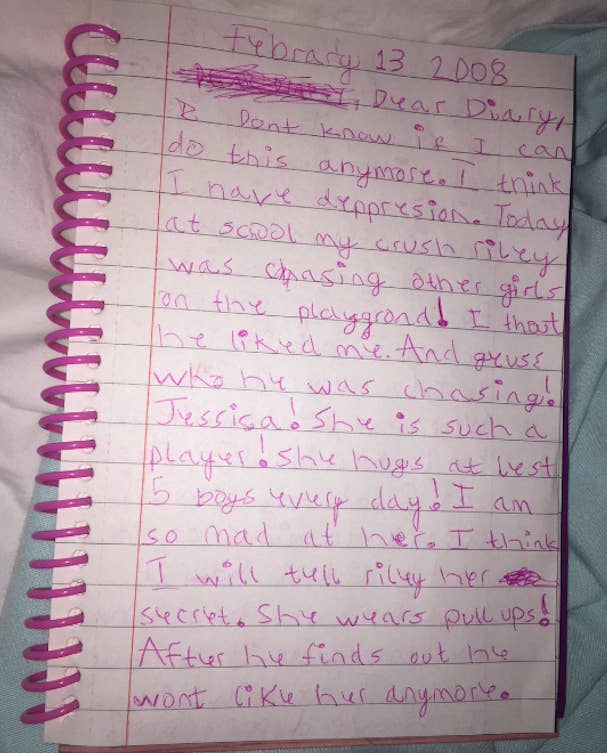 Febrary 13 2008
, Dear Diary,
I Dont know if I can
do this anymore. I think
I have deppresion. Today
at scool my crush riley
was chasing other girls
on the playgrond! I thout
he liked me. And geuse
who he was chasing!
Jessica! She is such a
player! She hugs at lest
5 boys every day! I am
so mad at her. I think
I will tell riley her
secret. She wears pull ups!
After he finds out he
wont like her anymore.